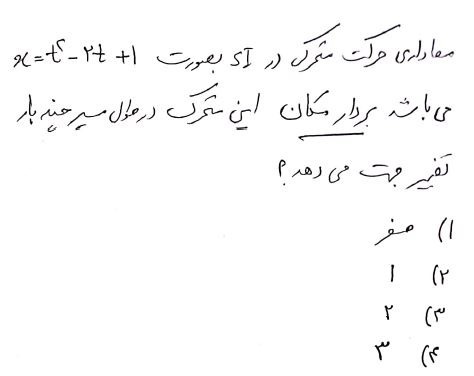 معادله‌ی حرکت متحرک در SI بصورت x=t²-۲t+1
می باشد بردار مکان این متحرک در طول مسیر چند بار
تغییر جهت می دهد؟
۱) صفر
۲) ۱
۳) ۲
۴) ۳